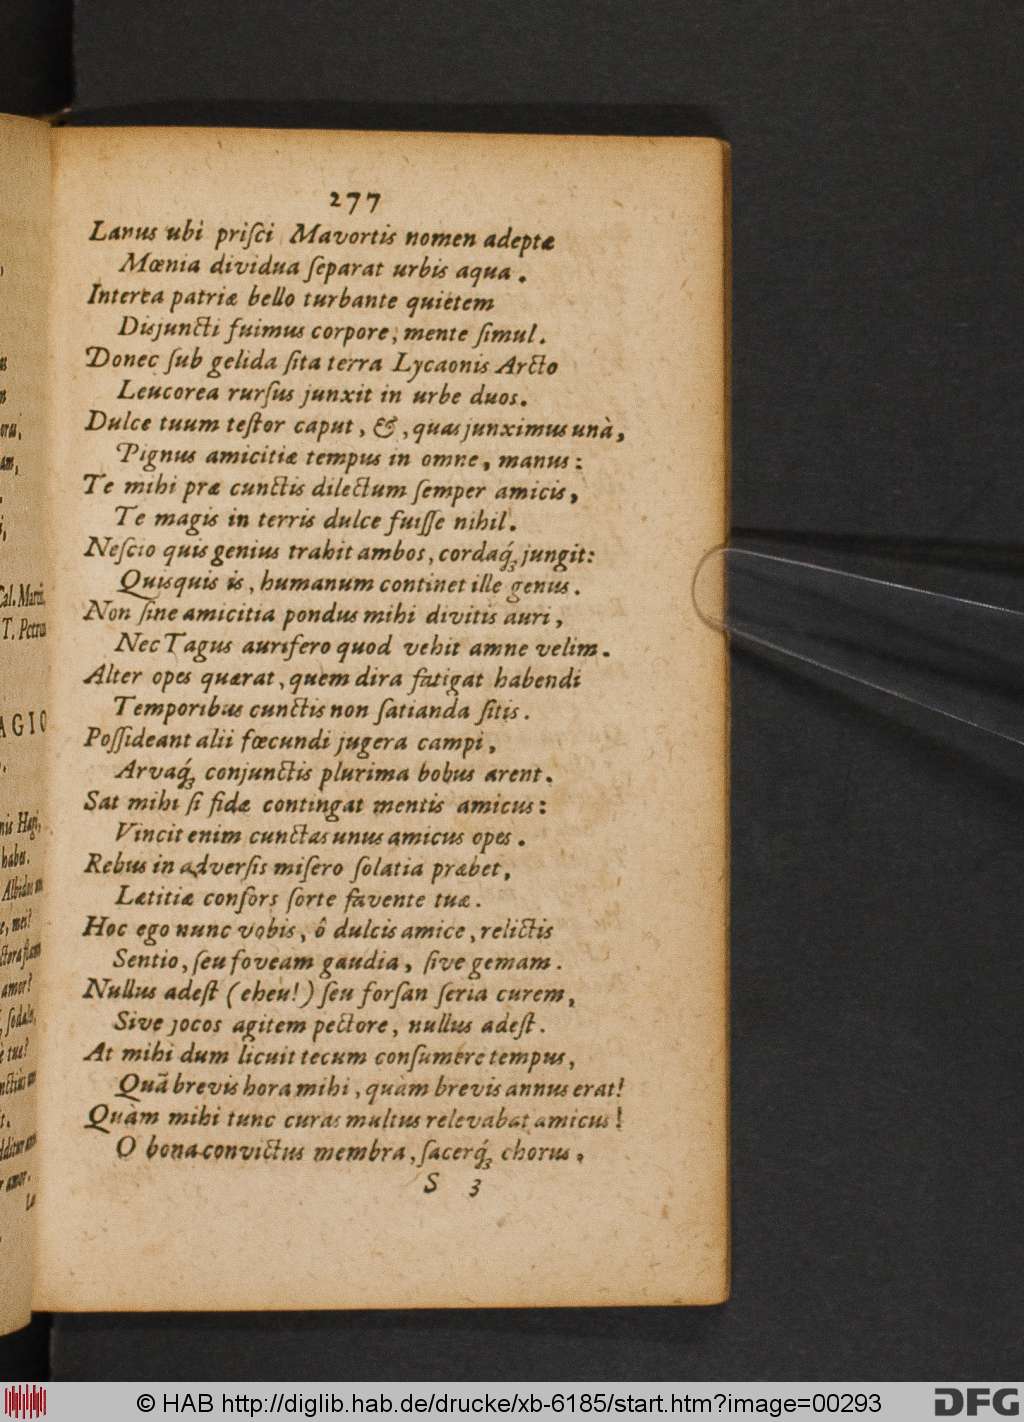 as
m
orai,
am,
Cal. Martii.
T. Petrus
AGIO
nis Hagi,
habes.
Albidos
e, mei?
amor?
sodale,
è tua?
amor.
La
277
Lanus ubi priſci Mavortis nomen adeptæ
Mœnia dividua ſeparat urbis aqua.
Interea patriæ bello turbante quietem
Disjuncti fuimus corpore, mente ſimul.
Donec ſub gelida ſita terra Lycaonis Arcto
Leucorea rurſus junxit in urbe duos.
Dulce tuum teſtor caput, &, quas junximus unà,
Pignus amicitiæ tempus in omne, manus:
Te mihi præ cunctis dilectum ſemper amicis,
Te magis in terris dulce fuiſſe nihil.
Neſcio quis genius trahit ambos, cordaq́; jungit:
Quisquis is, humanum continet ille genus.
Non ſine amicitia pondus mihi divitis auri,
Nec Tagus aurifero quod vehit amne velim.
Alter opes quærat, quem dira fatigat habendi
Temporibus cunctis non ſatianda ſitis.
Poſſideant alii fœcundi jugera campi,
Arvaq́; conjunctis plurima bobus arent.
Sat mihi ſi fidæ contingat mentis amicus:
Vincit enim cunctas unus amicus opes.
Rebus in adverſis miſero ſolatia præbet,
Lætitiæ conſors ſorte favente tuæ.
Hoc ego nunc vobis, ô dulcis amice, relictis
Sentio, ſeu foveam gaudia, ſive gemam.
Nullus adeſt (eheu!) ſeu forſan ſeria curem,
Sive jocos agitem pectore, nullus adeſt.
At mihi dum licuit tecum conſumere tempus,
Quã brevis hora mihi, quàm brevis annus erat!
Quàm mihi tunc curas multus relevabat amicus!
O bona convictus membra, ſacerq́; chorus.
S 3
© HAB http://diglib.hab.de/drucke/xb-6185/start.htm?image=00293
DFG